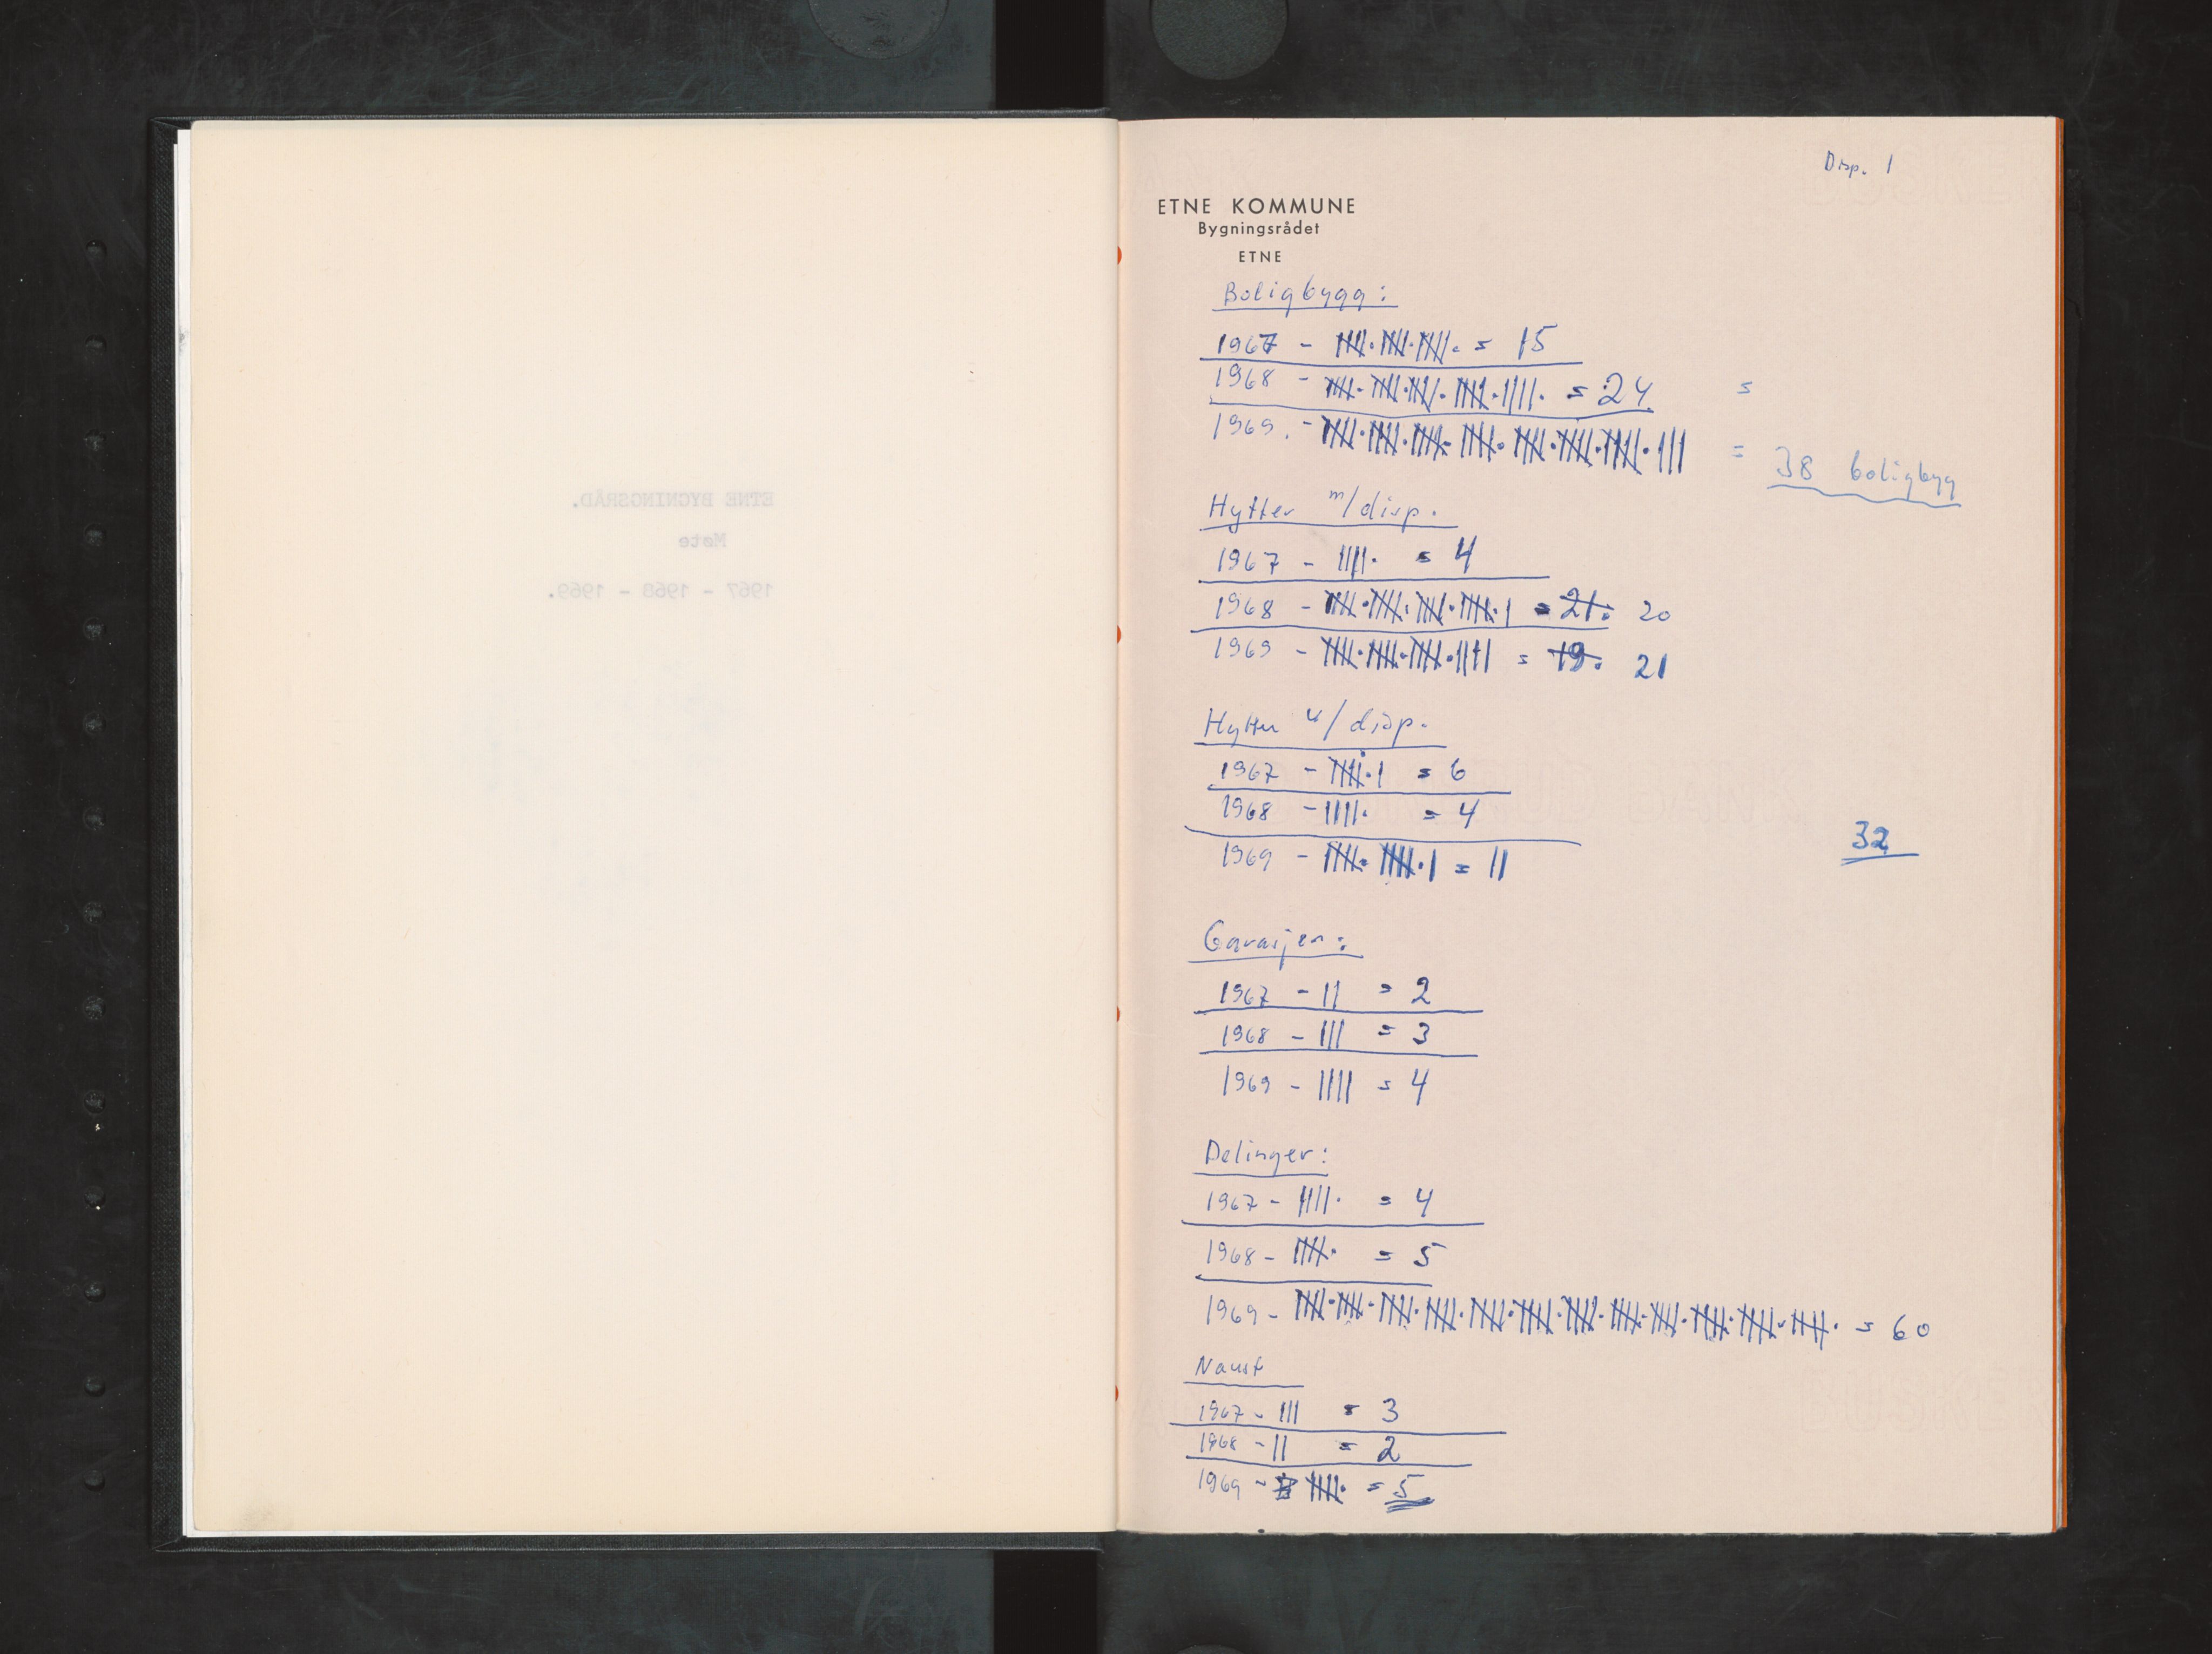 ETNE BYGNINGSRÅD.
Møte
1967 - 1968 - 1969.
Disp. 1
ETNE KOMMUNE
Bygningsrådet
ETNE
Boligbygg:
1967 - ~~||||~~ . ~~||||~~ . ~~||||~~ . = 15
1968 - ~~||||~~ . ~~||||~~ . ~~||||~~ . ~~||||~~ . |||| . = 24 =
1969. - ~~||||~~ . ~~||||~~ . ~~||||~~ . ~~||||~~ . ~~||||~~ . ~~||||~~ . ~~||||~~ . ||| = 38 boligbyg
Hytter m/disp.
1967 - |||| . = 4
1968 - ~~||||~~ . ~~||||~~ . ~~||||~~ . ~~||||~~ . | = ~~21.~~ 20
1969 - ~~||||~~ . ~~||||~~ . ~~||||~~ . |||| = ~~19.~~ 21
Hytter u/disp.
1967 - ~~||||~~ . | = 6
1968 - |||| . = 4
32
1969 - ~~||||~~ . ~~||||~~ . | = 11
Garasjer:
1967 - || = 2
1968 - ||| = 3
1969 - |||| = 4
Delinger:
1967 - |||| . = 4
1968 - ~~||||~~ . = 5
1969 - ~~||||~~ . ~~||||~~ . ~~||||~~ . ~~||||~~ . ~~||||~~ . ~~||||~~ . ~~||||~~ . ~~||||~~ . ~~||||~~ . ~~||||~~ . ~~||||~~ . ~~||||~~ . = 60
Naust
1967 - ||| = 3
1968 - || = 2
1969 - ~~||||~~ . = 5